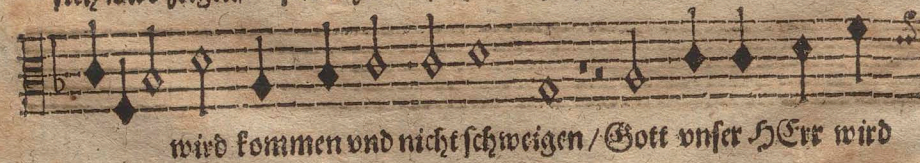 wird kommen vnd nicht schweigen / Gott vnser HErr wird